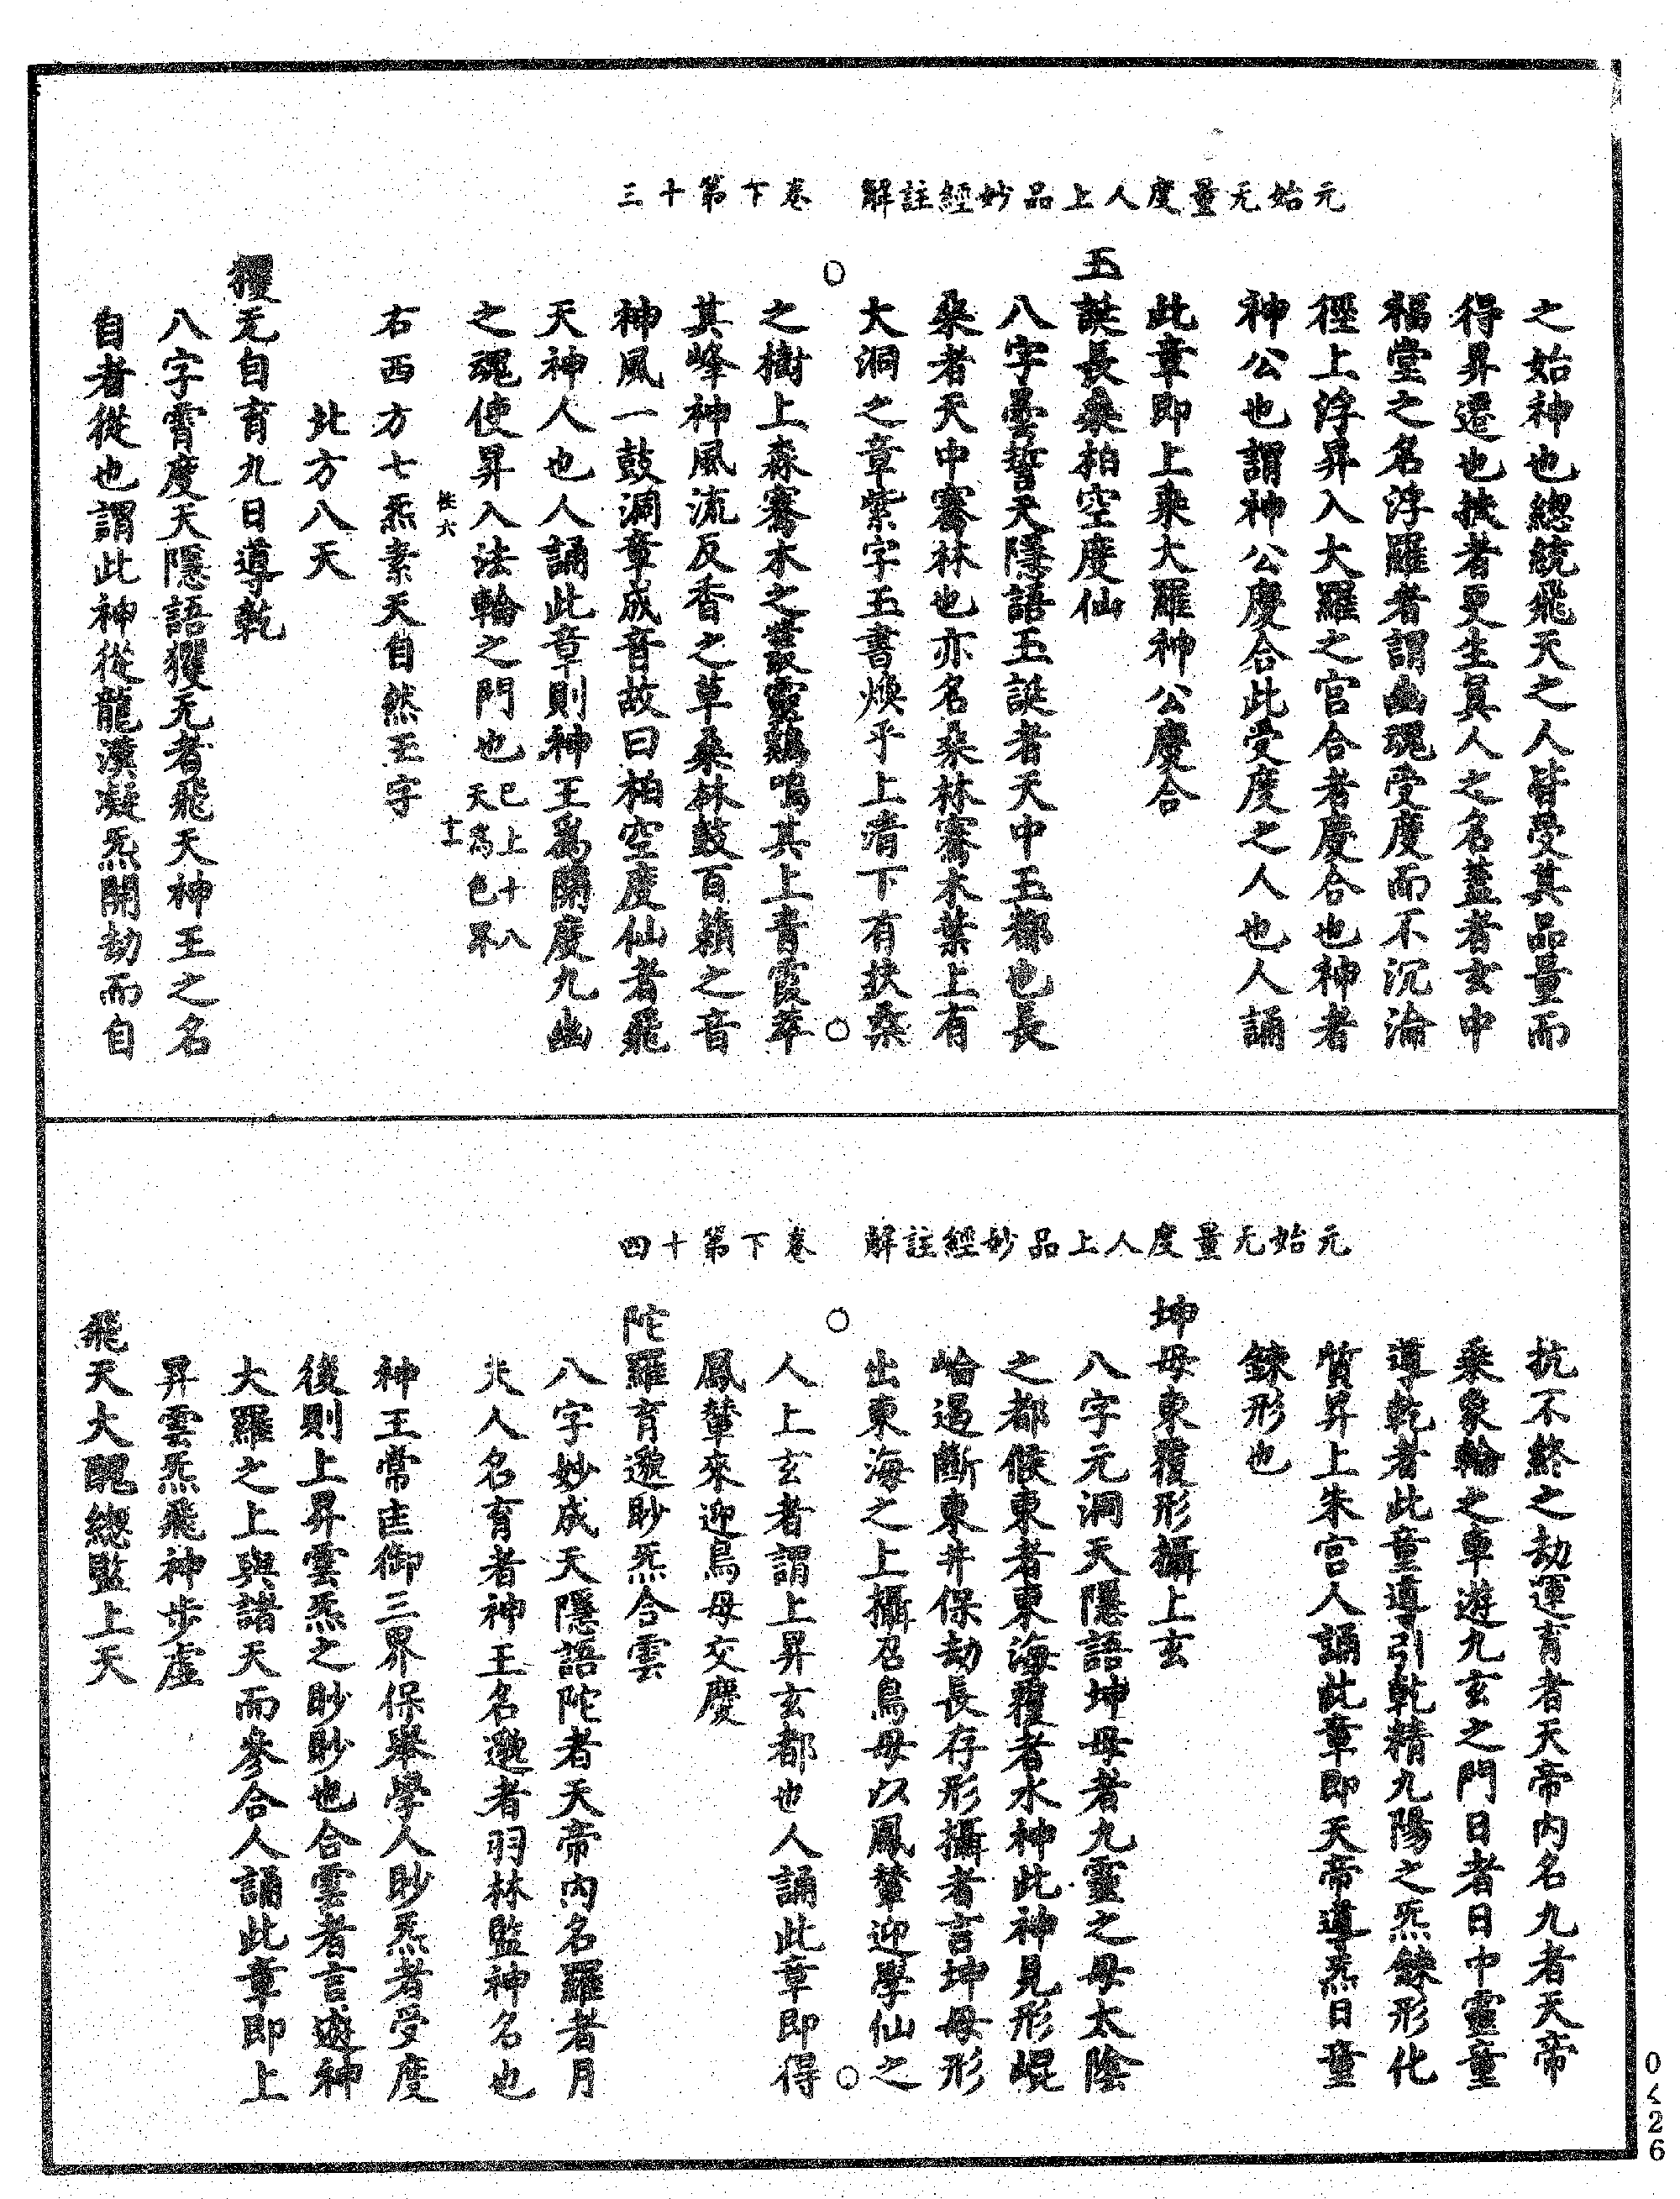 元始无量度人上品妙經註解　卷下第十三
之始神也總統飛天之人皆受其品量而
得昇遷也扶者更生真人之名蓋者玄中
福堂之名浮羅者謂幽魂受度而不沉淪
徑上浮昇入大羅之官合者慶合也神者
神公也謂神公慶合此受度之人也人誦
此章即上乘大羅神公慶合
玉誕長桑柏空度仙
八字曇誓天隱語玉誕者天中玉都也長
桑者天中騫林也亦名桑林騫木葉上有
大洞之章紫字玉書煥乎上清下有扶桑
之樹上森騫木之叢靈鷄鳴其上青霞萃
其峰神風流反香之草桑林鼓百籟之音
神風一鼓洞章成音故曰柏空度仙者飛
天神人也人誦此章則神王爲開度九幽
之魂使昇入法輪之門也已上十八天爲色界
右西方七炁素天自然玉字
北方八天
玃无自育九日導乾
八字霄度天隱語玃无者飛天神王之名
自者從也謂此神從龍漢凝炁開劫而自
元始无量度人上品妙經註解　卷下第十四
抗不終之劫運育者天帝内名九者天帝
乘象輪之車遊九玄之門日者日中靈童
導乾者此童導引乾精九陽之炁鍊形化
質昇上朱宫人誦此章即天帝導炁日童
鍊形也
坤母東覆形攝上玄
八字元洞天隱語坤母者九靈之母太陰
之都候東者東海覆者水神此神見形崐
崘過斷東井保劫長存形攝者言坤母形
出東海之上攝召鳥母以鳳輦迎學仙之
人上玄者謂上昇玄都也人誦此章即得
鳳輦來迎鳥母交慶
陀羅育邈眇炁合雲
八字妙成天隱語陀者天帝内名羅者月
夫人名育者神王名邈者羽林監神名也
神王常制御三界保舉學人眇炁者受度
後則上昇雲炁之眇眇也合雲者言邈神
大羅之上與諸天而參合人誦此章即上
昇雲炁飛神步虚
飛天大醜總監上天
0426